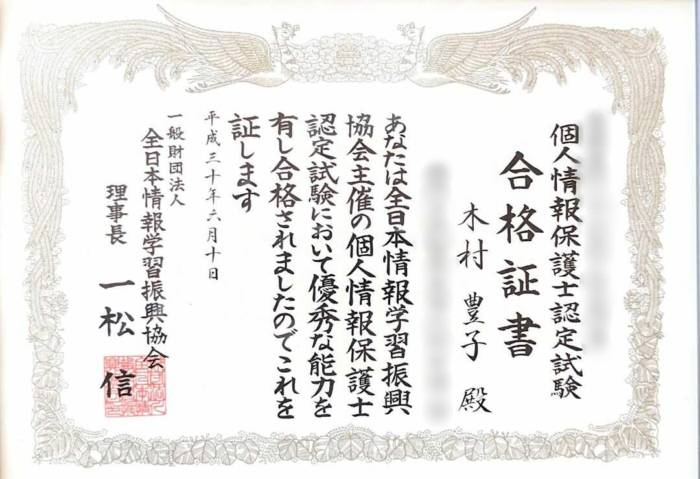 個人情報保護士認定試験
合格証書
木村 豊子 殿
あなたは全日本情報学習振興
協会主催の個人情報保護士
認定試験において優秀な能力を
有し合格されましたのでこれを
証します
平成三十年六月十日
一般財団法人
全日本情報学習振興協会
理事長 一松 信